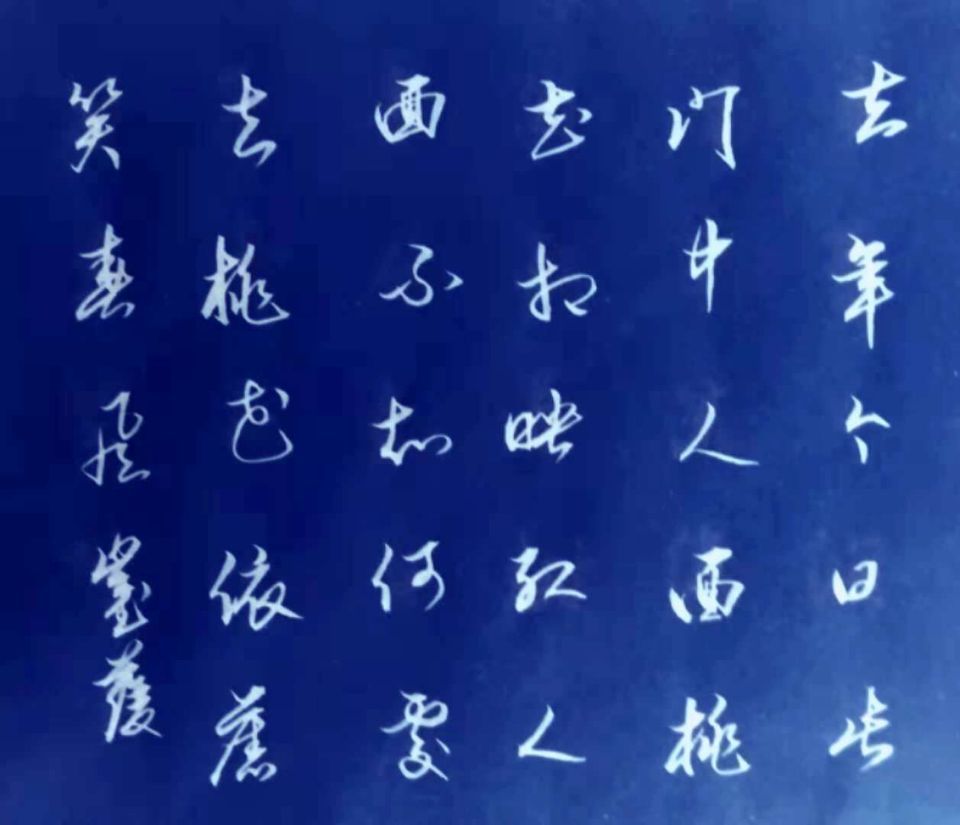 去年今日此
门中人面桃
花相映红人
面不知何處
去桃花依舊
笑春风崔護